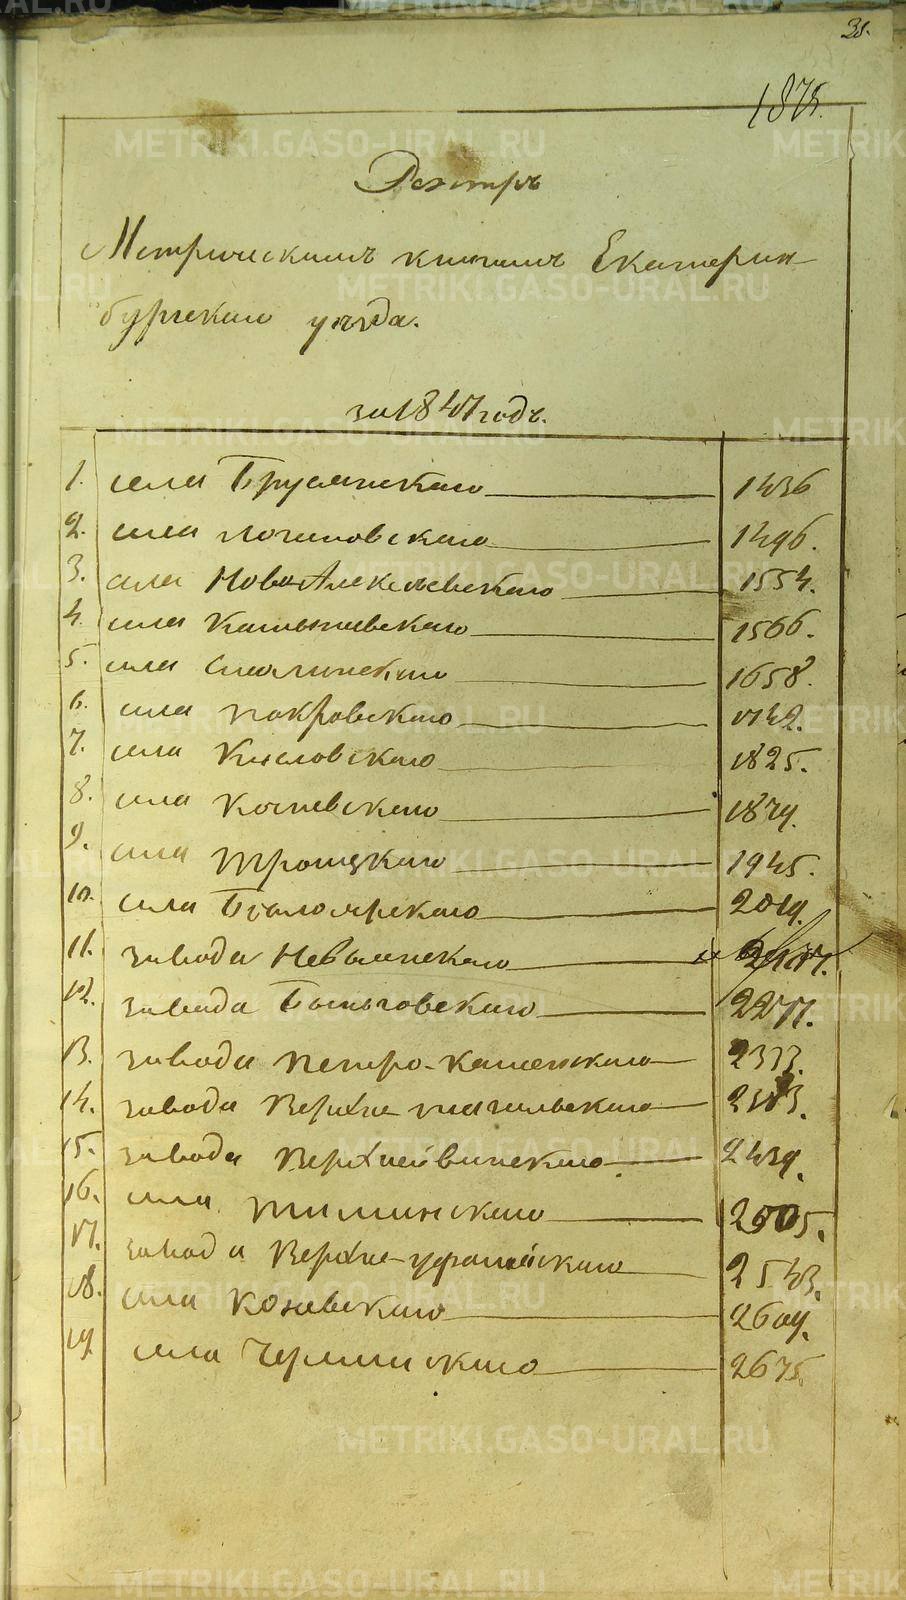 31.
1875.
Реэстръ
Метрическимъ книгамъ Екатерин-
бургскаго уѣзда.
за 1847 годъ.
1. села Бруснянскаго 1436
2. села Логиновскаго 1496.
3. села НовоАлексѣевскаго 1554.
4. села 1566.
5. села Смолинскаго 1658.
6. села Покровскаго 1742.
7. села Кисловскаго 1825.
8. села Кочневскаго 1879.
9. села Троицкаго 1945.
10. села Бѣлоярскаго 2019.
11. завода Невьянскаго
12. завода Быньговскаго 2277.
13. завода Петро-Каменскаго 2333.
14. завода Верхне-тагильскаго
15. завода Верхнейвинскаго 2439.
16. села 2505.
17. завода Верхне-уфалейскаго 2543.
18. села Коневскаго 2609.
19 села 2675.
METRIKI.GASO-URAL.RU